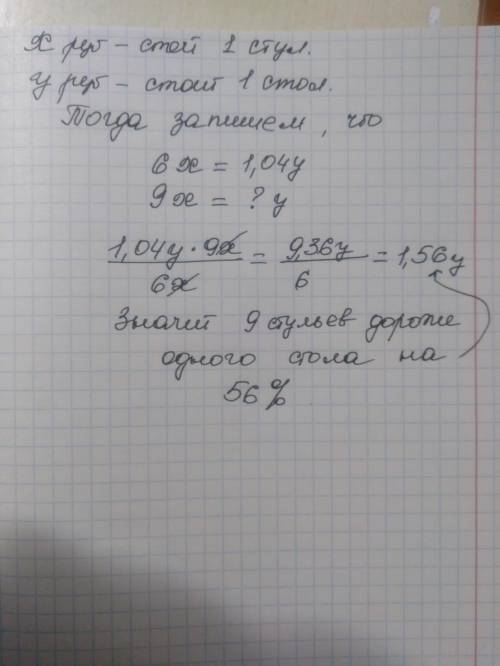 x руб – стоит 1 стул.
y руб – стоит 1 стол.
Тогда запишем, что
6x = 1,04y
9x = ? y
1,04y · 9x / 6x = 9,36y / 6 = 1,56y
Значит 9 стульев дороже
одного стола на
56%